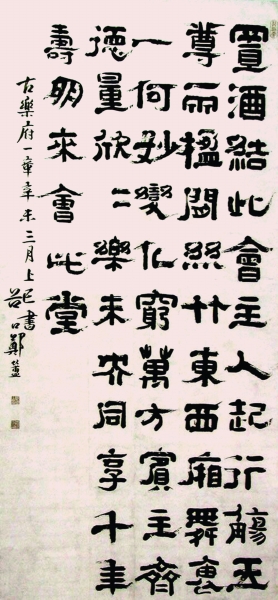 置酒結此會主人起行觴玉
尊兩楹間絲竹東西廂舞褎
一何妙變化窮萬方賓主齊
德量欣二樂未央同享千年
壽朋來會此堂
古樂府一章辛未三月上巳書
谷口鄭簠